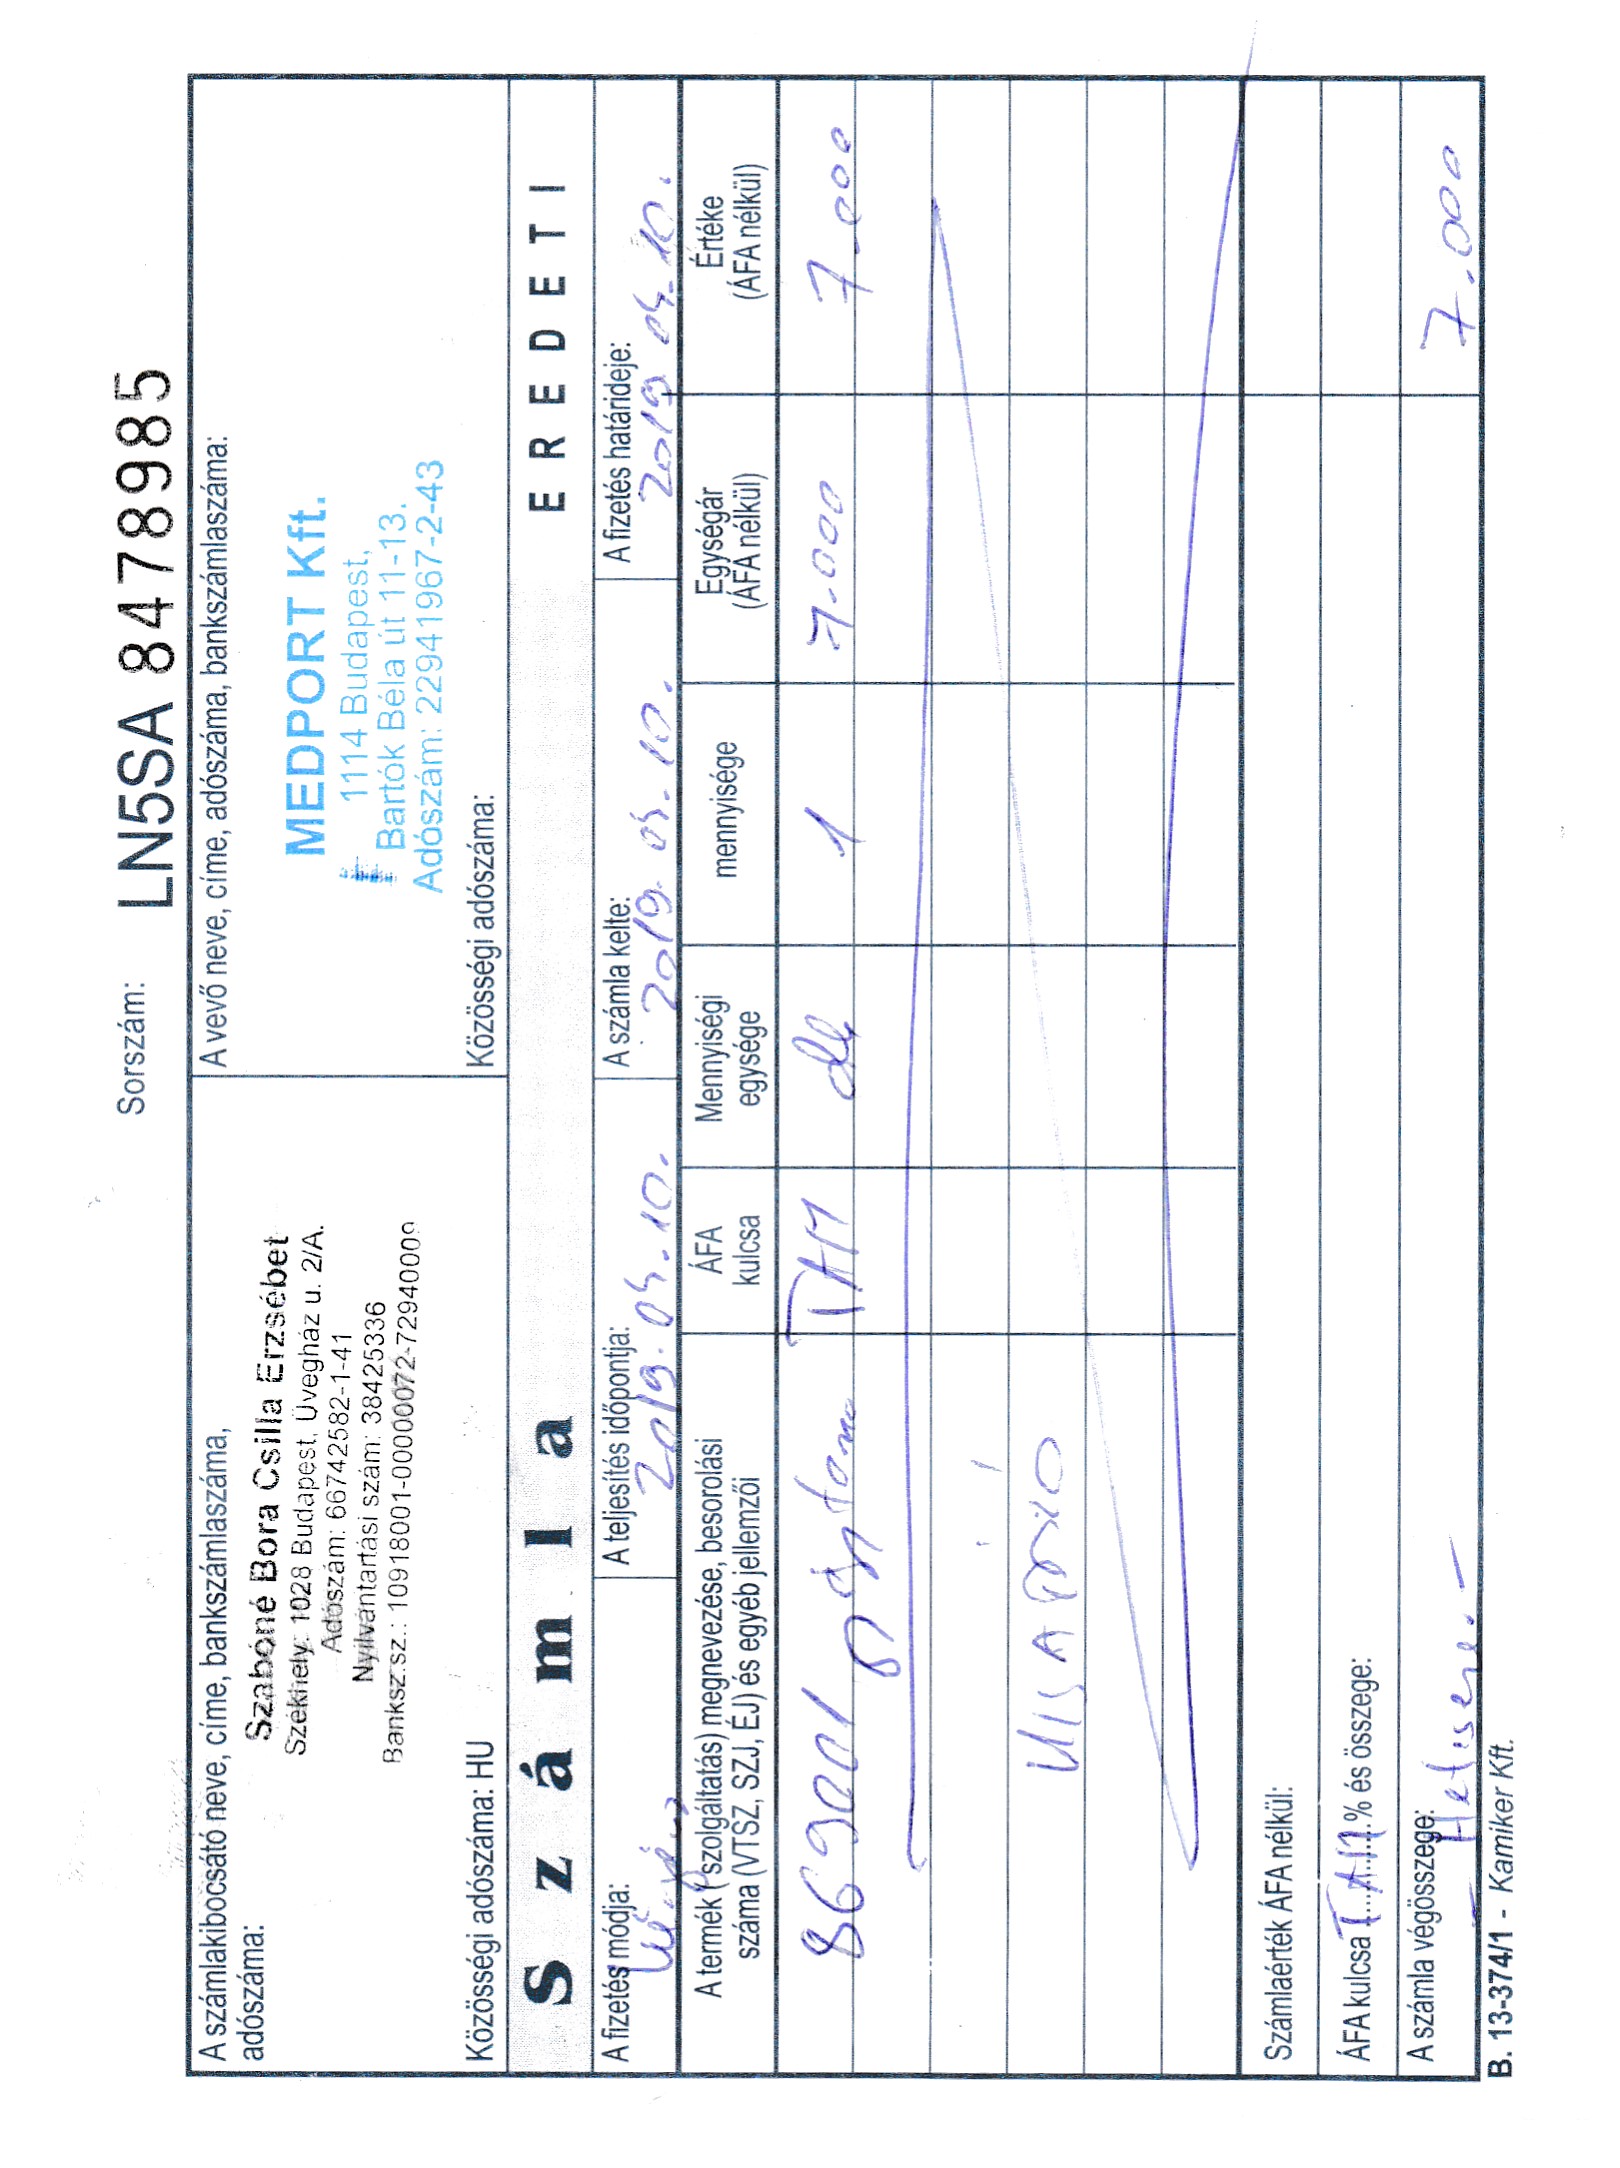 Sorszám: LN5SA 8478985
A számlakibocsátó neve, címe, bankszámlaszáma,
adószáma:
Szabóné Bora Csilla Erzsébet
Székhely: 1028 Budapest, Üvegház u. 2/A.
Adószám: 66742582-1-41
Nyilvántartási szám: 38425336
Banksz.sz.: 10918001-00000072-72940009
Közösségi adószáma: HU
A vevő neve, címe, adószáma, bankszámlaszáma:
MEDPORT Kft.
1114 Budapest,
Bartók Béla út 11-13.
Adószám: 22941967-2-43
Közösségi adószáma:
Számla
EREDETI
A fizetés módja:
A teljesítés időpontja:
2019.04.10.
A számla kelte:
2019.04.10.
A fizetés határideje:
2019.04.10.
A termék (szolgáltatás) megnevezése, besorolási
száma (VTSZ, SZJ, ÉJ) és egyéb jellemzői
ÁFA
kulcsa
Mennyiségi
egysége
mennyisége
Egységár
(ÁFA nélkül)
Értéke
(ÁFA nélkül)
869001 TAM db 1 7.000 7.000
KISADÓZÓ
Számlaérték ÁFA nélkül:
ÁFA kulcsa TAM % és összege:
A számla végösszege: 7.000
Hétezer.-
B. 13-374/1 - Kamiker Kft.